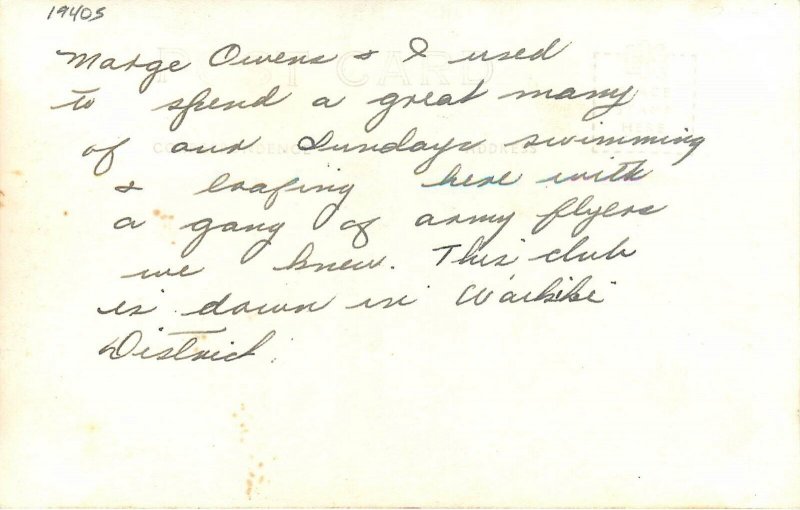 1940s
Marge Owens & I used
to spend a great many
of our Sundays swimming
& loafing here with
a gang of army flyers
we knew. This club
is down in Waikiki
District.
POST CARD
CORRESPONDENCE
ADDRESS
PLACE
HERE